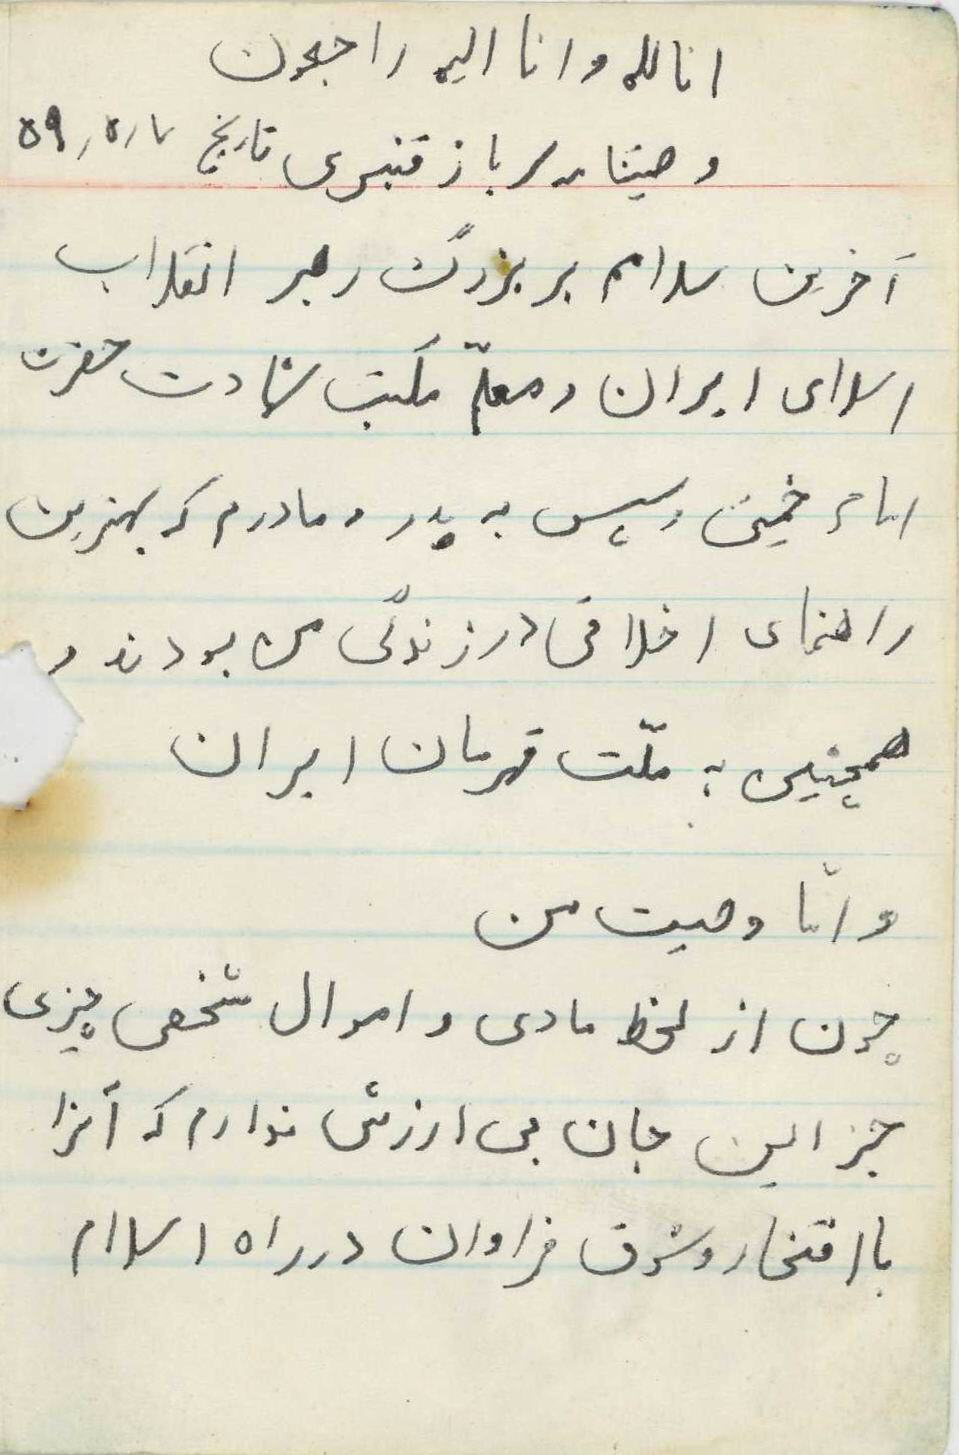 انالله و انا الیه راجعون
وصیتنامه سرباز قنبری تاریخ ۵۹٫۵٫۷
آخرین سلامم بر بزرگ رهبر انقلاب
اسلامی ایران و معلّم مکتب شهادت حضرت
امام خمینی و سپس به پدر و مادرم که بهترین
راهنمای اخلاقی در زندگی من بودند و
همچنین به ملّت قهرمان ایران
و امّا وصیت من
چون از لحظ مادی و اموال شخصی چیزی
جز این جان بی ارزشی ندارم که آنرا
با افتخار و شوق فراوان در راه اسلام